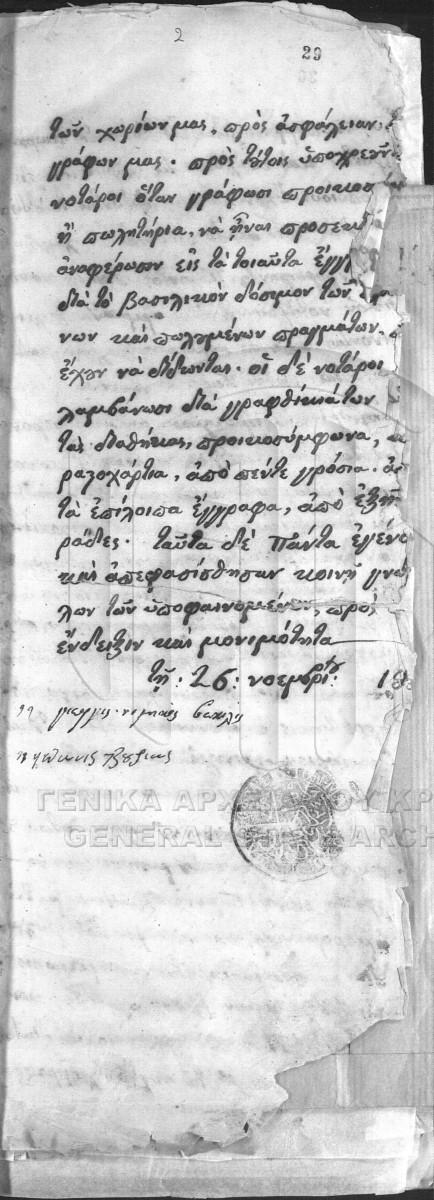 2
29
τῶν χωρίων μας, πρὸς ἀσφάλειαν
γράφων μας. πρὸς τούτοις ὑποχρεοῦν
νοτάροι ὅταν γράφωσι προικοσ
ἢ πωλητήρια, νὰ ᾖναι προσεκ
ἀναφέρωσιν εἰς τὰ τοιαῦτα ἔγγ
διὰ τὸ βασιλικὸν δόσιμον τῶν
νων καὶ πωλομένων πραγμάτων,
ἔχουν νὰ δίδωνται. οἱ δὲ νοτάροι
λαμβάνωσι διὰ γραφθικιάτων
τὰς διαθήκας, προικοσύμφωνα,
ραζοχάρτια, ἀπὸ πέντε γρόσια.
τὰ ἐπίλοιπα ἔγγραφα, ἀπὸ ἑξῆ
ράδες. ταῦτα δὲ πάντα ἐγένο
καὶ ἀπεφασίσθησαν κοινῇ γνώ
λων τῶν ὑποφαινομένων, πρὸς
ἔνδειξιν καὶ μονιμότητα
τῇ: 26: νοεμβρίου: 18
ΓΕΝΙΚΑ ΑΡΧΕΙΑ ΤΟΥ ΚΡ
GENERAL STATE ARCH